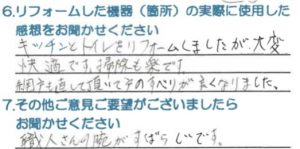 6.リフォームした機器（箇所）の実際に使用した
感想をお聞かせください
キッチンとトイレをリフォームしましたが、大変
快適です。掃除も楽です。
網戸も直して頂いて戸のすべりが良くなりました。
7.その他ご意見ご要望がございましたら
お聞かせください
職人さんの腕がすばらしいです。